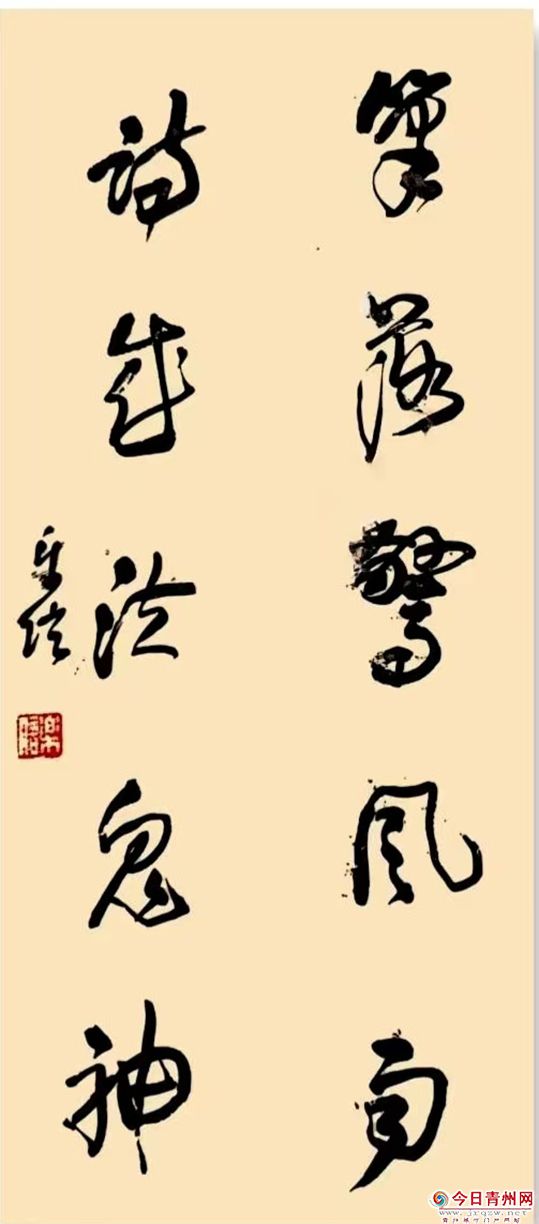 筆落驚風雨
詩成泣鬼神
今日青州网
www.jrqzw.net